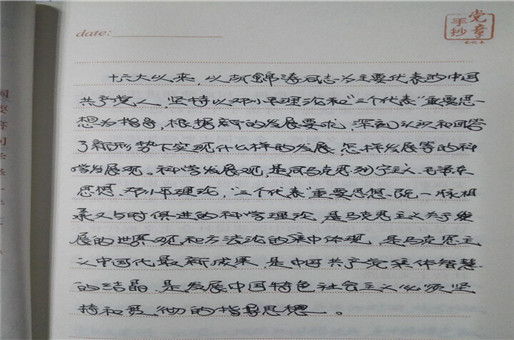 党章
手抄
date:
十六大以来，以胡锦涛同志为主要代表的中国
共产党人，坚持以邓小平理论和"三个代表"重要思
想为指导，根据新的发展要求，深刻认识和回答
了新形势下实现什么样的发展、怎样发展等的科
学发展观。科学发展观，是同马克思列宁主义、毛泽东
思想、邓小平理论，"三个代表"重要思想既一脉相
承又与时俱进的科学理论，是马克思主义关于发
展的世界观和方法论的集中体现，是马克思主
义中国化最新成果，是中国共产党集体智慧
的结晶，是发展中国特色社会主义必须坚
持和贯彻的指导思想。